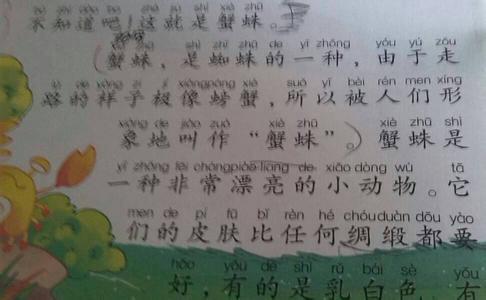 bù zhī dào ba zhè jiù shì xiè zhū
不知道吧！这就是蟹蛛。
xiè zhū shì zhī zhū de yì zhǒng yóu yú zǒu
（蟹蛛，是蜘蛛的一种，由于走
lù de yàng zi jí xiàng páng xiè suǒ yǐ bèi rén men xíng
路的样子极像螃蟹，所以被人们形
xiàng de jiào zuò xiè zhū xiè zhū shì
象地叫作“蟹蛛”。）蟹蛛是
yì zhǒng fēi cháng piào liang de xiǎo dòng wù tā
一种非常漂亮的小动物。它
men de pí fū bǐ rèn hé chóu duàn dōu yào
们的皮肤比任何绸缎都要
hǎo yǒu de shì rǔ bái sè yǒu
好，有的是乳白色，有